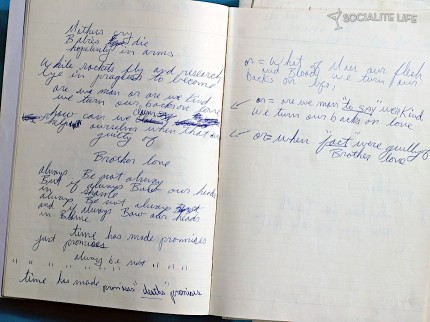 Mothers cry
Babies die
hopelessly in arms
While rockets fly and research
lye in progress to become
are we men or are we kind
we turn our backs on love
How can we say
help ourselves when that we
guilty of
Brother love
always Be not always
But if always Bow our heads
in shame
always Be not always
and if always Bow our heads
in Blame
time has made promises
just promises
always be not
" " " " " " "
time has made promises "deaths" promises
SOCIALITE LIFE
or = What of Man our flesh
and Blood we turn our
backs on life,
or = are we men "to say" we Kind
we turn our backs on love
or = when "fact" were guilty of
Brother love